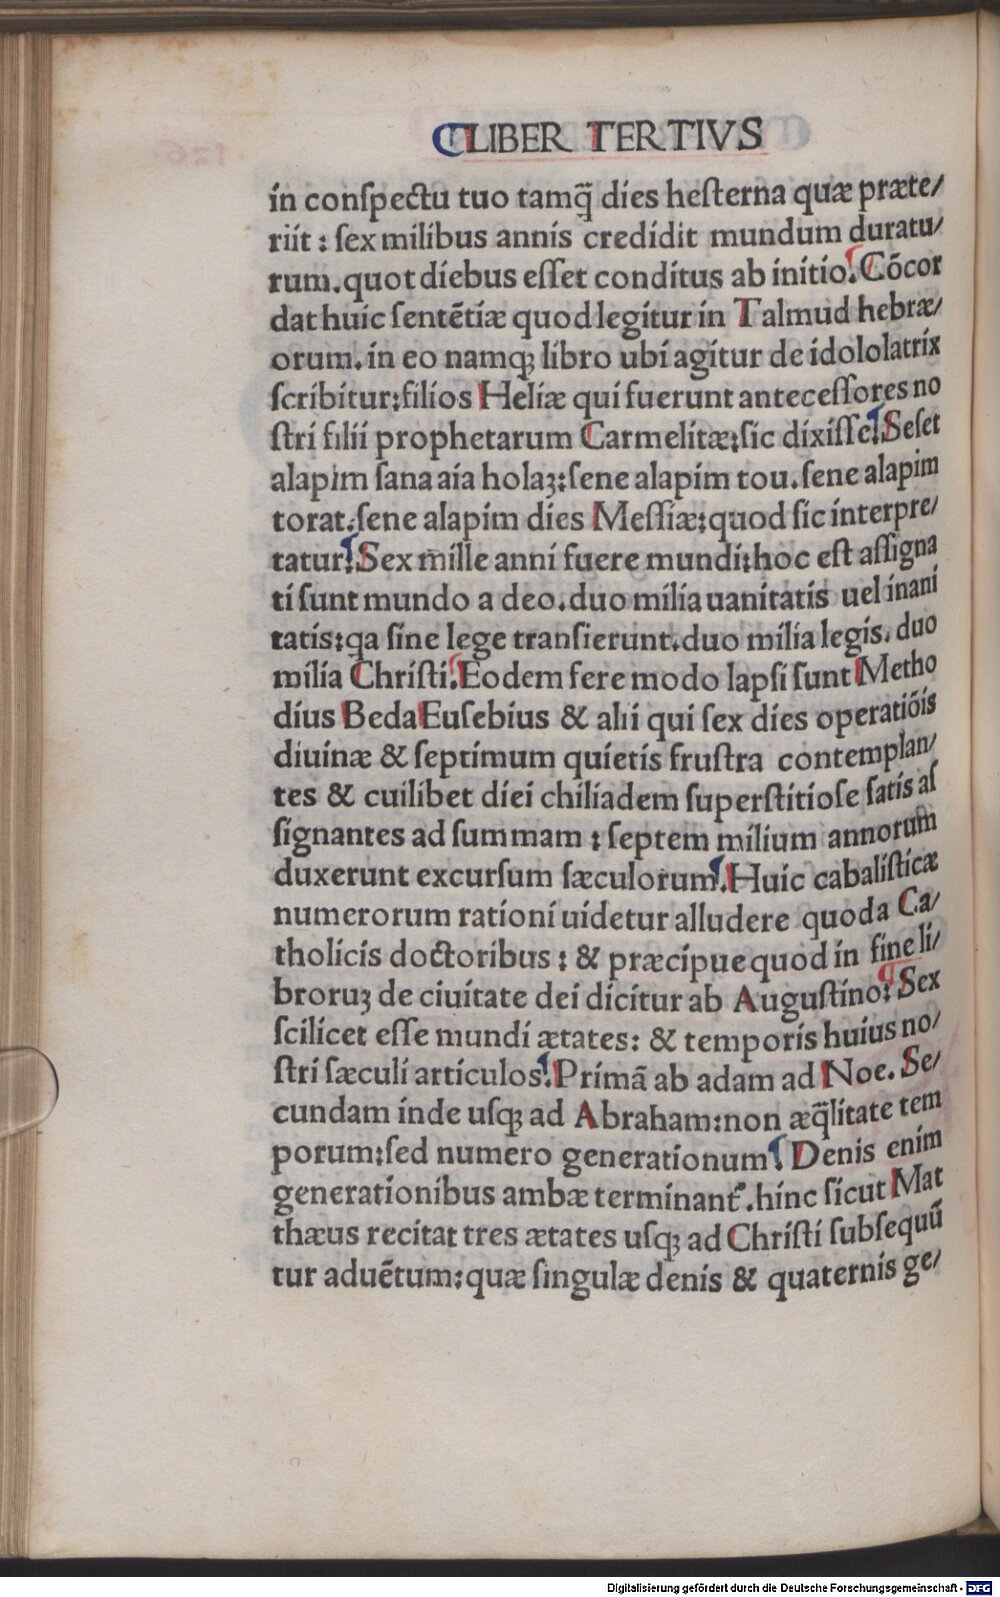 LIBER TERTIVS
in conſpectu tuo tamq̃ dies heſterna quæ præte/
riit : ſex milibus annis credidit mundum duratu/
rum. quot diebus eſſet conditus ab initio. Cõcor
dat huic ſentẽtiæ quod legitur in Talmud hebræ/
orum. in eo namqꝫ libro ubi agitur de idololatrix
ſcribitur: filios Heliæ qui fuerunt anteceſſores no
ſtri filii prophetarum Carmelitæ: ſic dixiſſe. Seſet
alapim ſana aia holaꝫ: ſene alapim tou. ſene alapim
torat. ſene alapim dies Meſſiæ: quod ſic interpre/
tatur. Sex mille anni fuere mundi: hoc eſt aſſigna
ti ſunt mundo a deo. duo milia uanitatis uel inani
tatis: qa ſine lege tranſierunt. duo milia legis. duo
milia Chriſti. Eodem fere modo lapſi ſunt Metho
dius Beda Euſebius & alii qui ſex dies operatiõis
diuinæ & ſeptimum quietis fruſtra contemplan/
tes & cuilibet diei chiliadem ſuperſtitioſe ſatis aſ
ſignantes ad ſummam : ſeptem milium annorum
duxerunt excurſum ſæculorum. Huic cabaliſticæ
numerorum rationi uidetur alludere quoda Ca/
tholicis doctoribus : & præcipue quod in fine li/
broruꝫ de ciuitate dei dicitur ab Auguſtino: Sex
ſcilicet eſſe mundi ætates: & temporis huius no/
ſtri ſæculi articulos. Primã ab adam ad Noe. Se/
cundam inde uſqꝫ ad Abraham: non æq̃litate tem
porum: ſed numero generationum. Denis enim
generationibus ambæ terminant᷑. hinc ſicut Mat
thæus recitat tres ætates uſqꝫ ad Chriſti ſubſequũ
tur aduẽtum: quæ ſingulæ denis & quaternis ge/
Digitalisierung gefördert durch die Deutsche Forschungsgemeinschaft - DFG